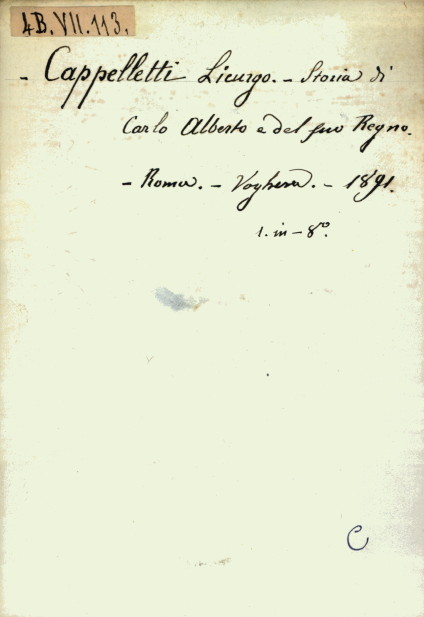 4B.VII.113.
- Cappelletti Licurgo. - Storia di
Carlo Alberto e del suo Regno.
- Roma. - Voghera. - 1891.
1. in - 8º.
C